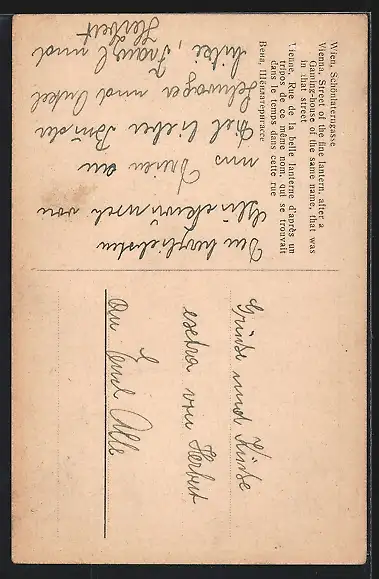 Wien, Schönlaterngasse
Vienna, Street of the fine lantern, after a
Gaming-house of the same name, that was
in that street
Vienne, Rue de la belle lanterne d'après un
tripos de ce même nom, qui se trouvait
dans le temps dans cette rue
Вена, Шёнлатернгассе
Den herzlichsten
Glückwunsch von
uns Dreien an
Dich lieber Bruder
Schwager und Onkel
Mitzi, Franzl und
Herbert
Grüße und Küße
extra von Herbert
an Emil Alle